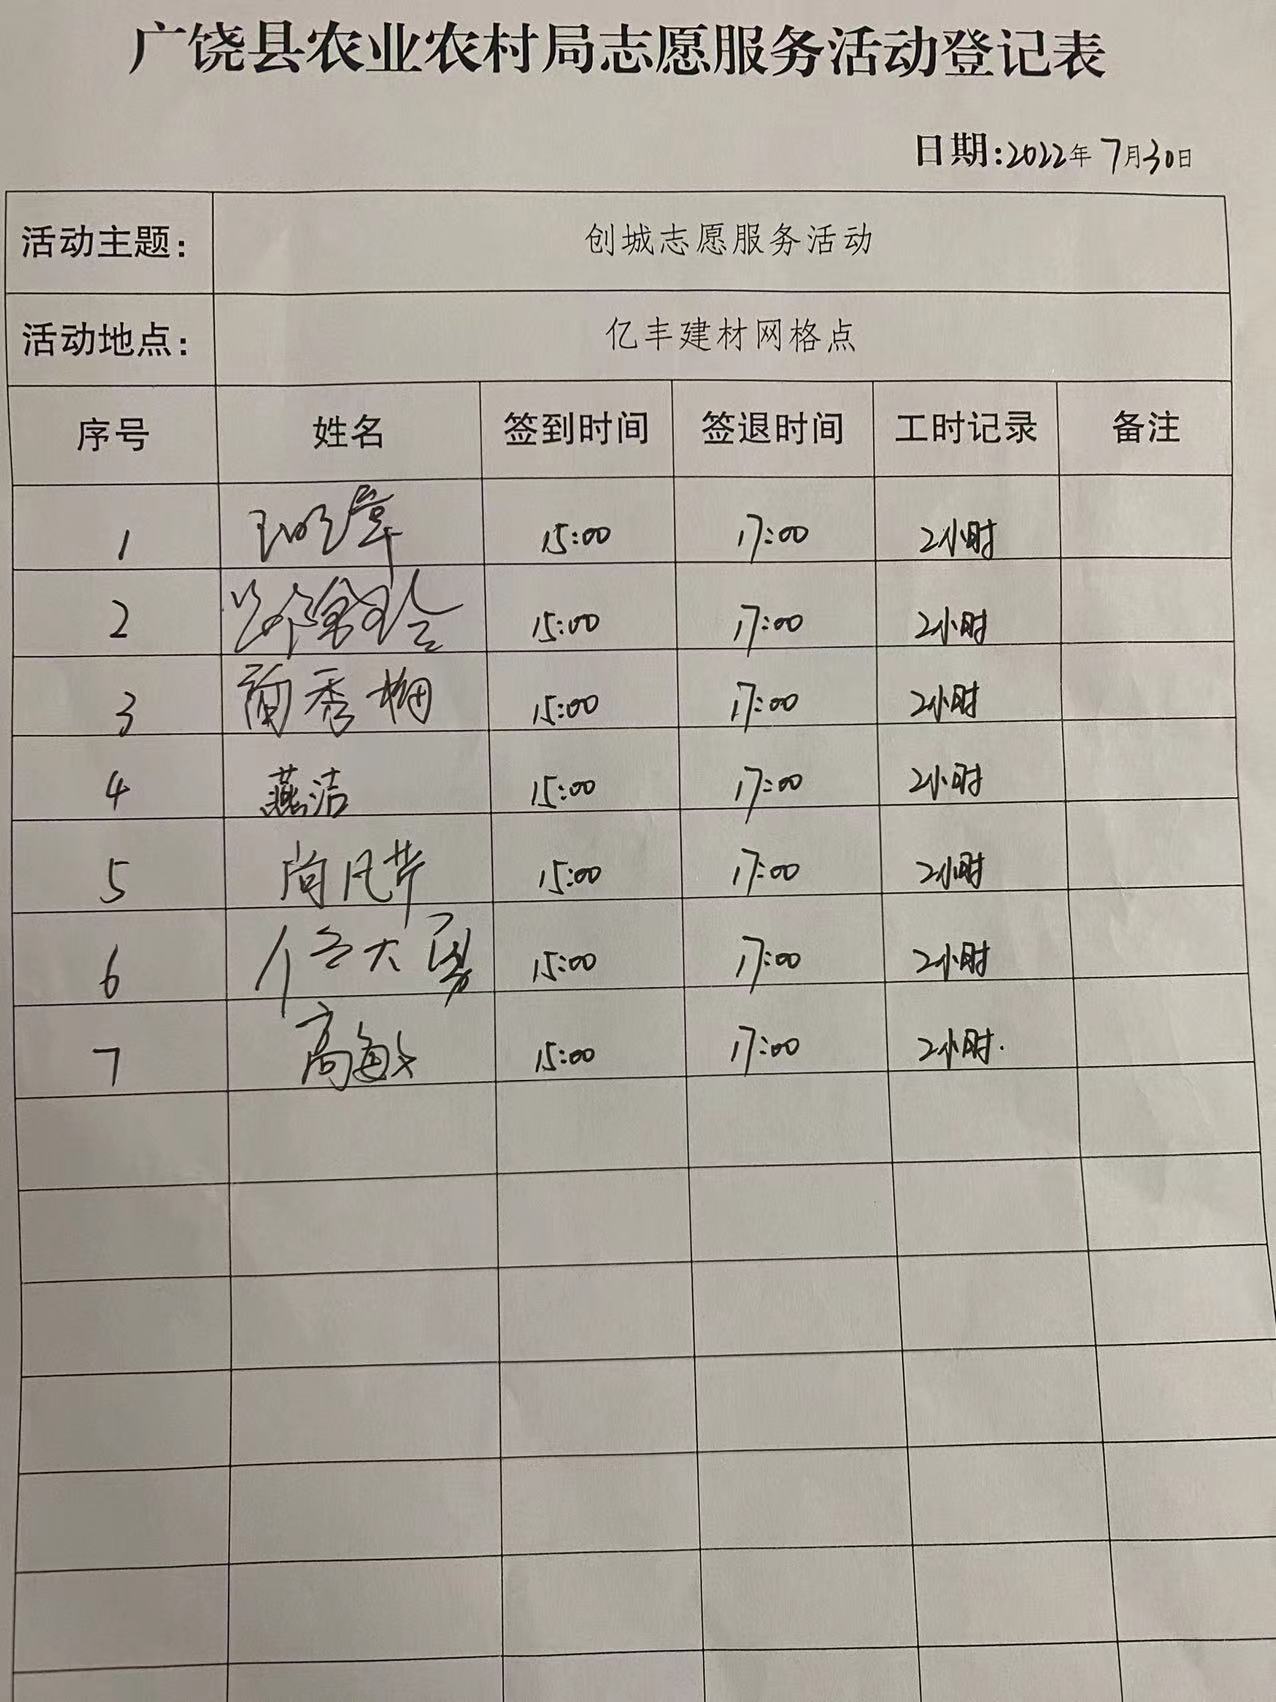 广饶县农业农村局志愿服务活动登记表
日期:2022年7月30日
活动主题: 创城志愿服务活动
活动地点: 亿丰建材网格点
序号 姓名 签到时间 签退时间 工时记录 备注
1 15:00 17:00 2小时
2 15:00 17:00 2小时
3 秀梅 15:00 17:00 2小时
4 燕洁 15:00 17:00 2小时
5 尚凡芹 15:00 17:00 2小时
6 15:00 17:00 2小时
7 高敏 15:00 17:00 2小时.